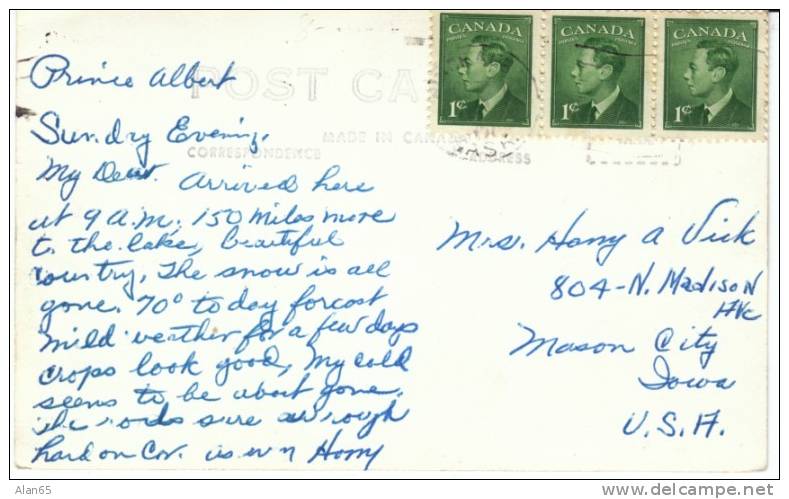 CANADA CANADA CANADA
POSTES POSTAGE POSTES POSTAGE POSTES POSTAGE
1¢ 1¢ 1¢
POST CA
MADE IN CANADA
CORRESPONDENCE
ADDRESS
SASK
Prince Albert
Sunday Evening.
My Dear. Arrived here
at 9 a.m. 150 miles more
to the lake, beautiful
country. The snow is all
gone. 70° to day forcost
mild weather for a few days
crops look good, My cold
seems to be about gone.
The roads sure are rough
hard on Car. Harry
Mrs. Harry A Vick
804-N. Madison
Ave
Mason City
Iowa
U.S.A.
Alan65
http://www.delcampe.net